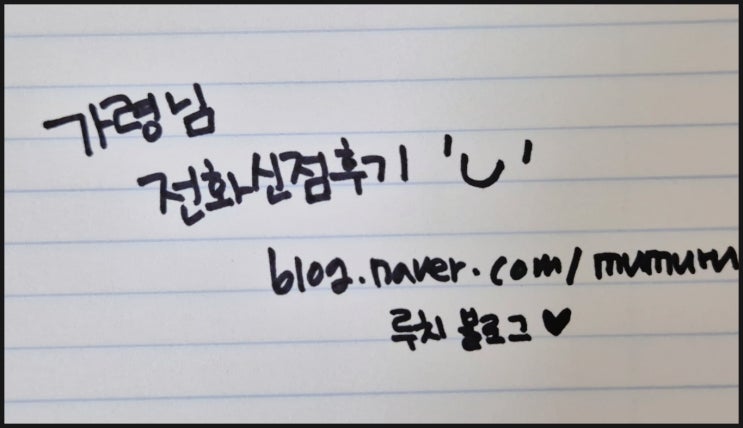 가령님
전화신점후기 'ᴗ'
blog.naver.com/mumuru
루치 블로그 ♥